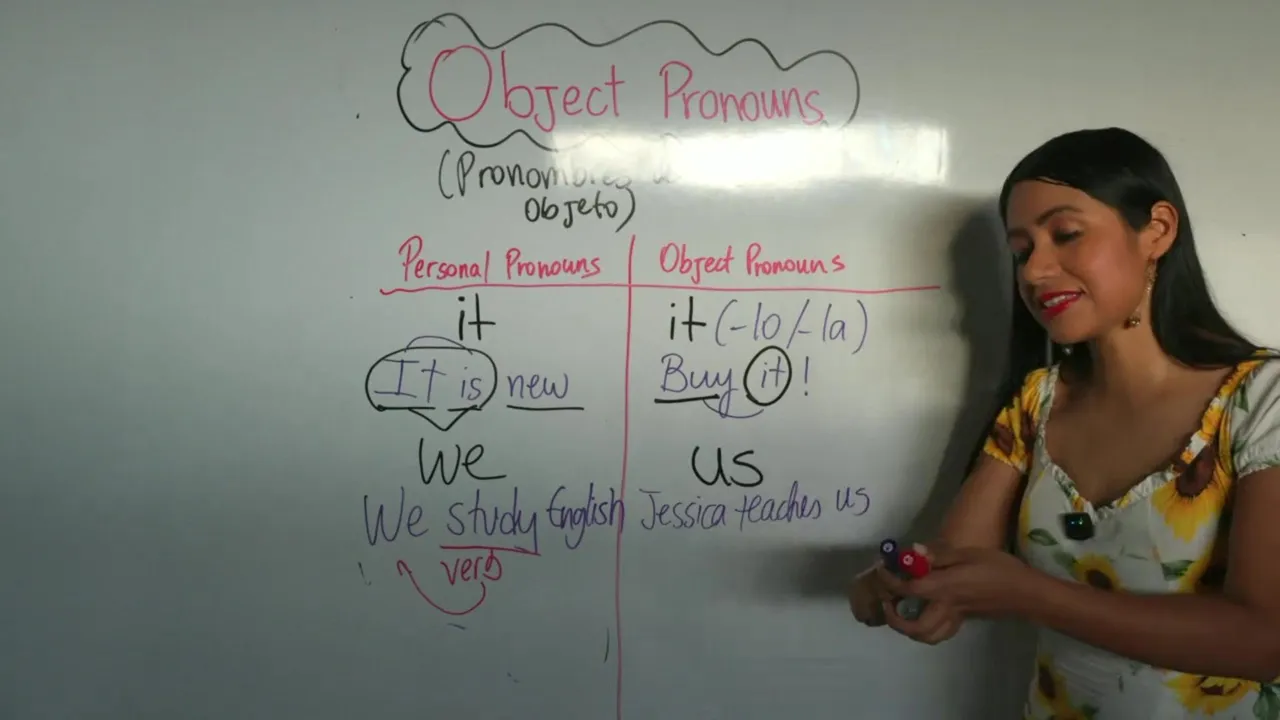 Object Pronouns
(Pronombres
Objeto)
Personal Pronouns Object Pronouns
it it (-lo/-la)
It is new Buy it!
we us
We study English Jessica teaches us
verb